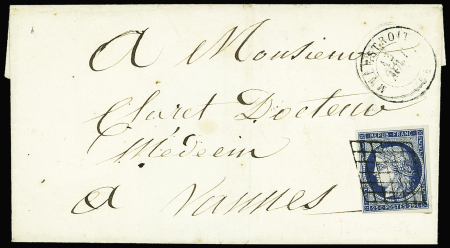 A Monsieur
Claret Docteur
Médecin
A Vannes
MALESTROIT
REPUB. FRANC.
25 C. POSTES 25 C.